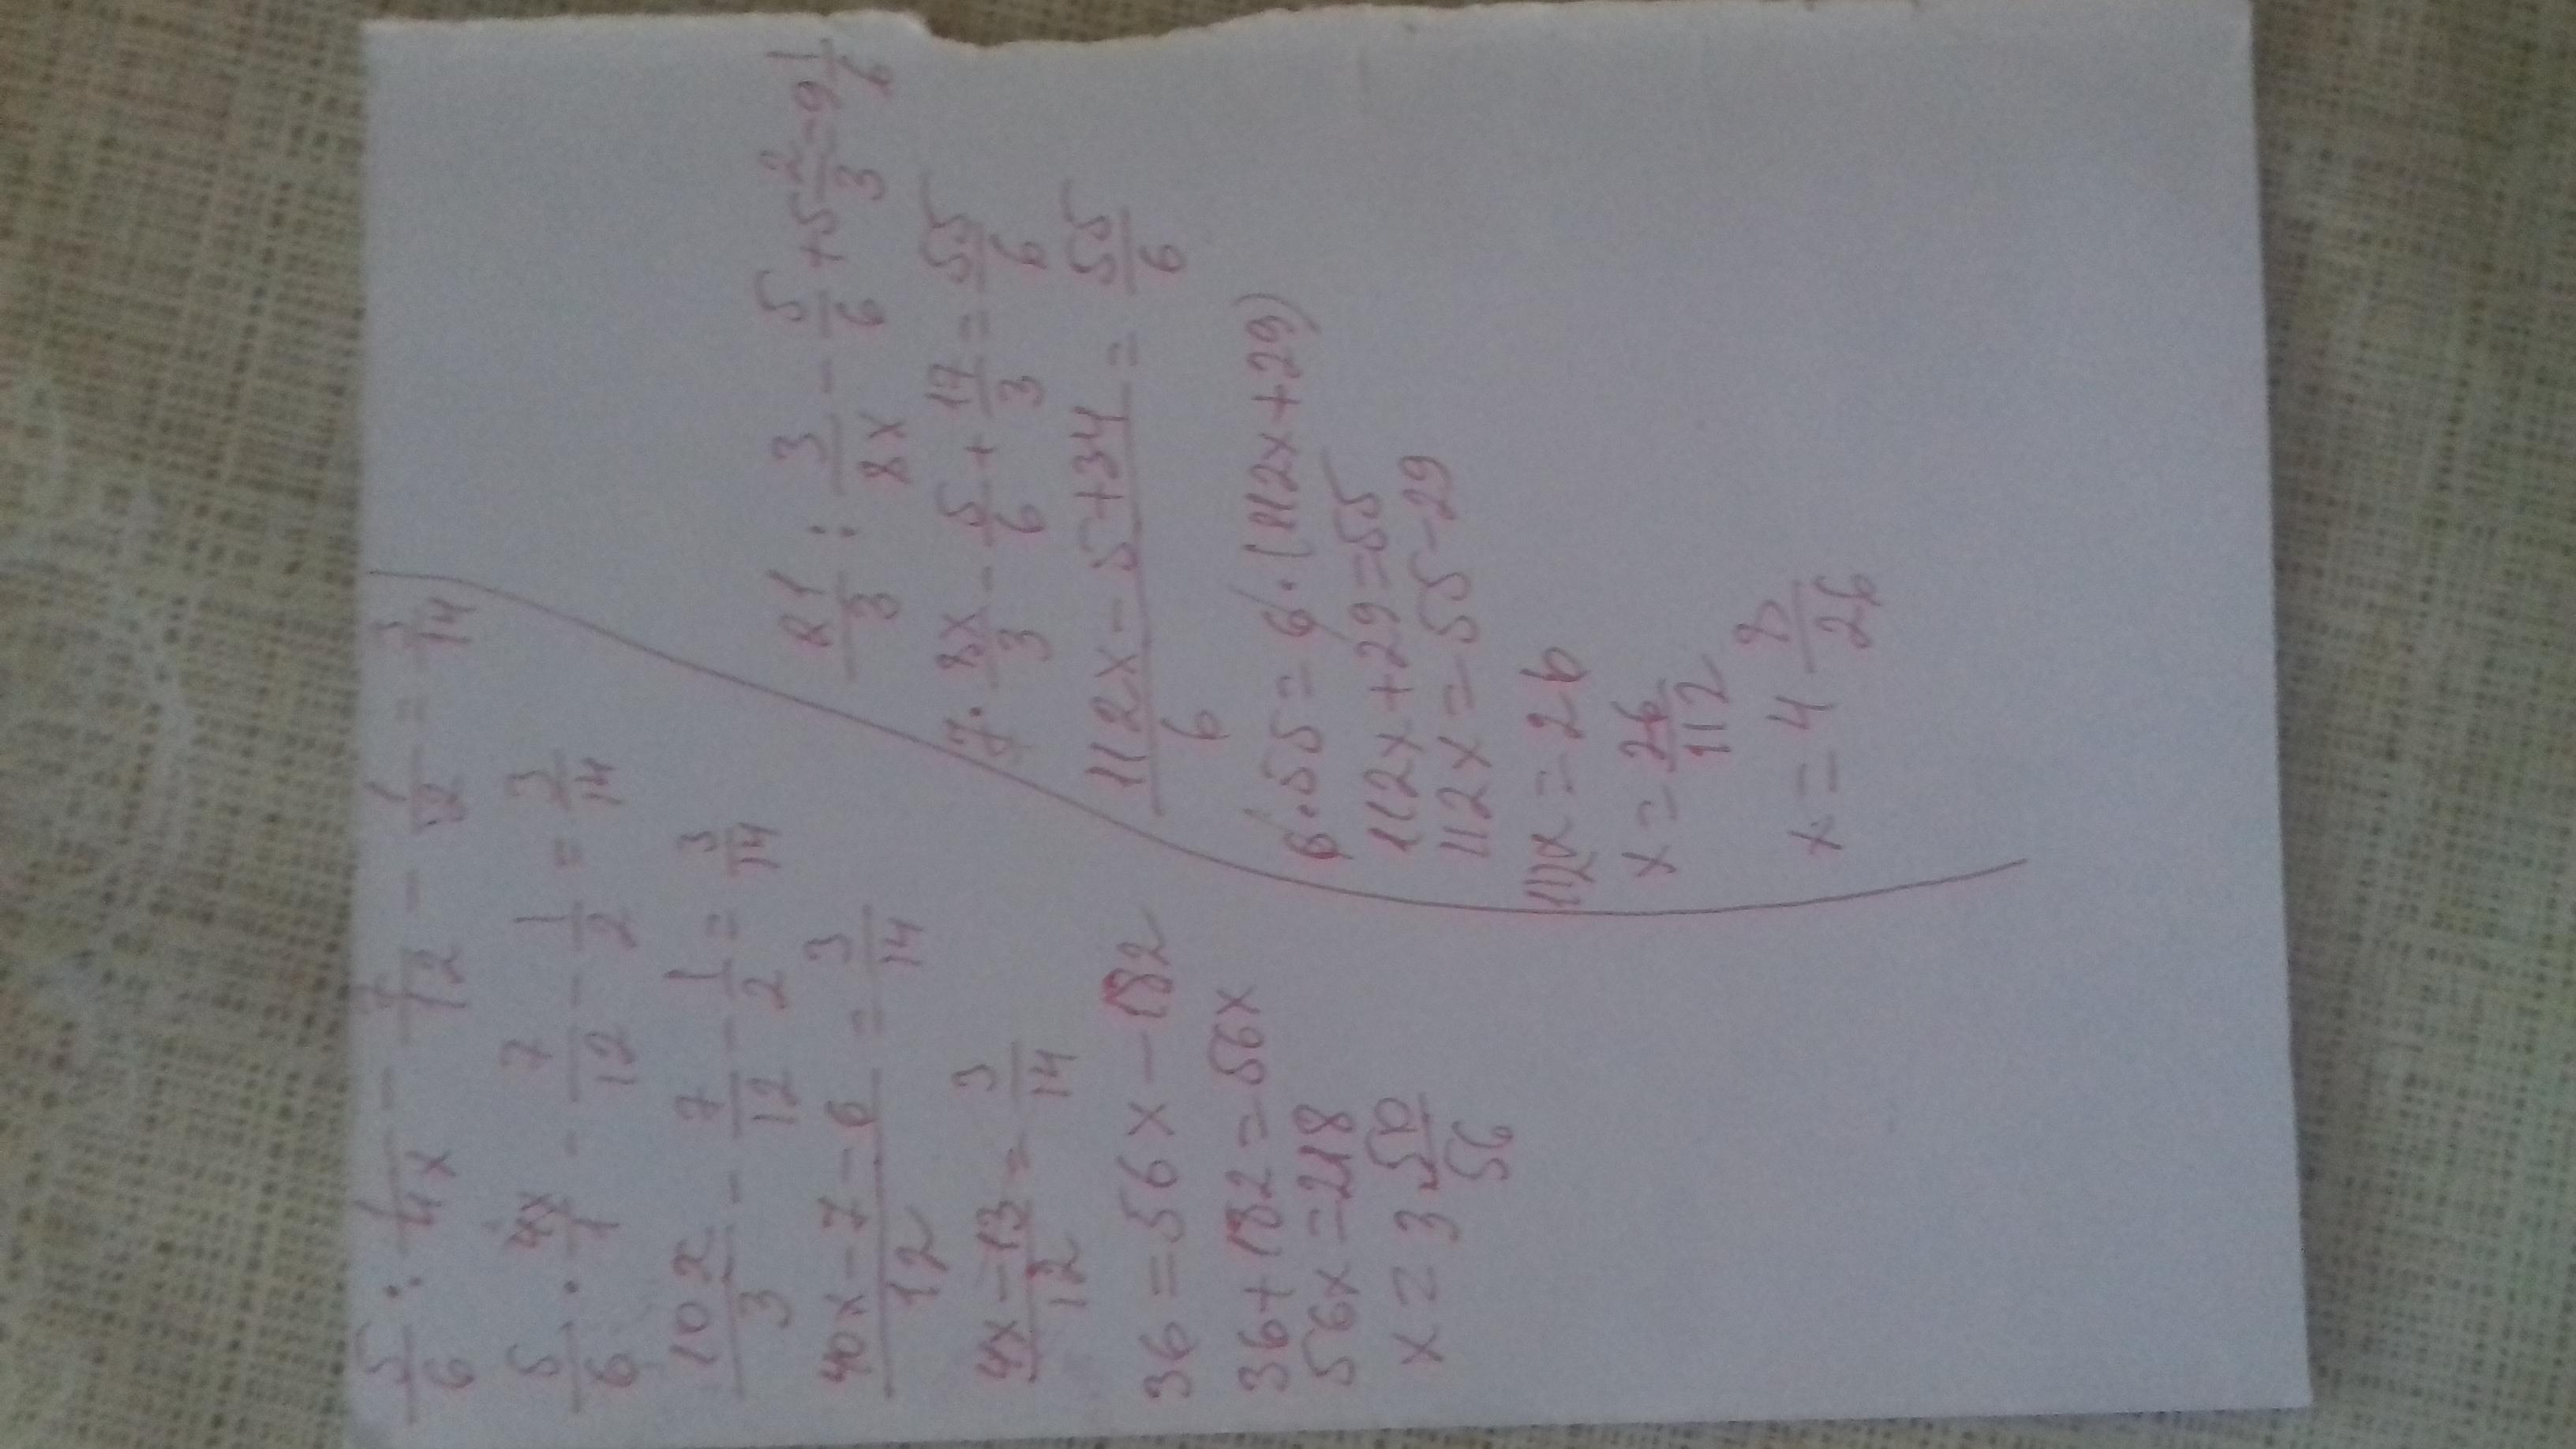 5/6 : 1/4x - 7/12 - 1/2 = 3/14
5/6 · 4x/1 - 7/12 - 1/2 = 3/14
10x/3 - 7/12 - 1/2 = 3/14
40x-7-6/12 = 3/14
4x-13/12 = 3/14
36=56x-182
36+182=56x
56x=218
x=3 50/56
21/3 : 3/8x - 5/6 + 5 2/3 = 9 1/6
7 · 8x/3 - 5/6 + 17/3 = 55/6
112x-5+34/6 = 55/6
6·55=6·(112x+29)
112x+29=55
112x=55-29
112x=26
x=26/112
x=4 8/26